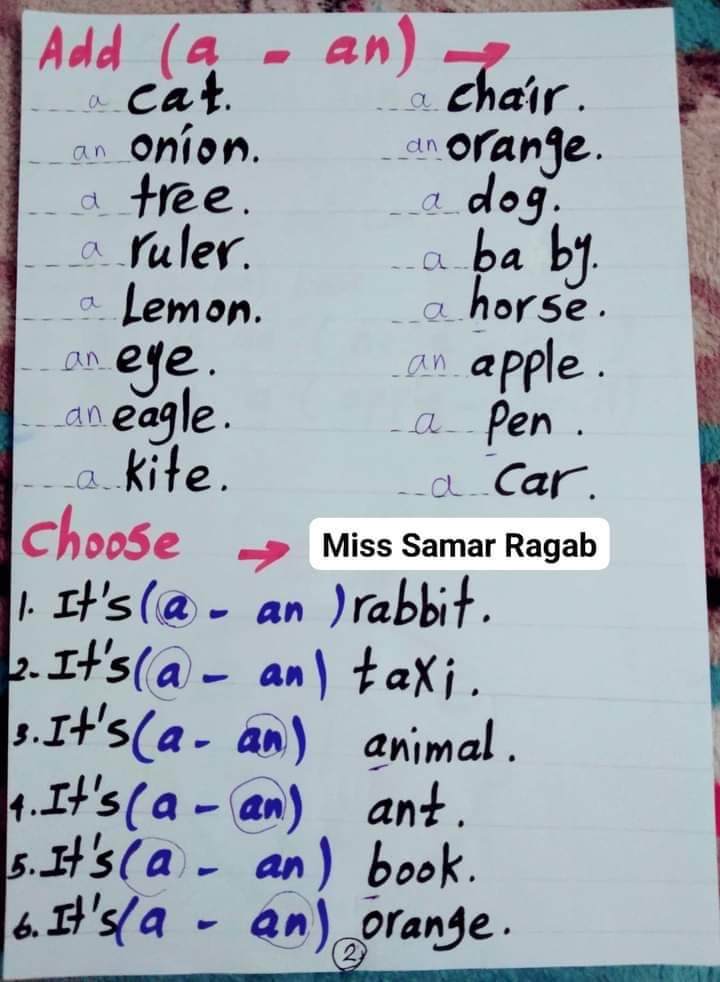 Add (a - an) →
a cat. a chair.
an onion. an orange.
a tree. a dog.
a ruler. a ba by.
a Lemon. a horse.
an eye. an apple.
an eagle. a Pen.
a kite. a car.
Choose → Miss Samar Ragab
1. It's (a - an) rabbit.
2. It's (a - an) taxi.
3. It's (a - an) animal.
4. It's (a - an) ant.
5. It's (a - an) book.
6. It's (a - an) orange.
2